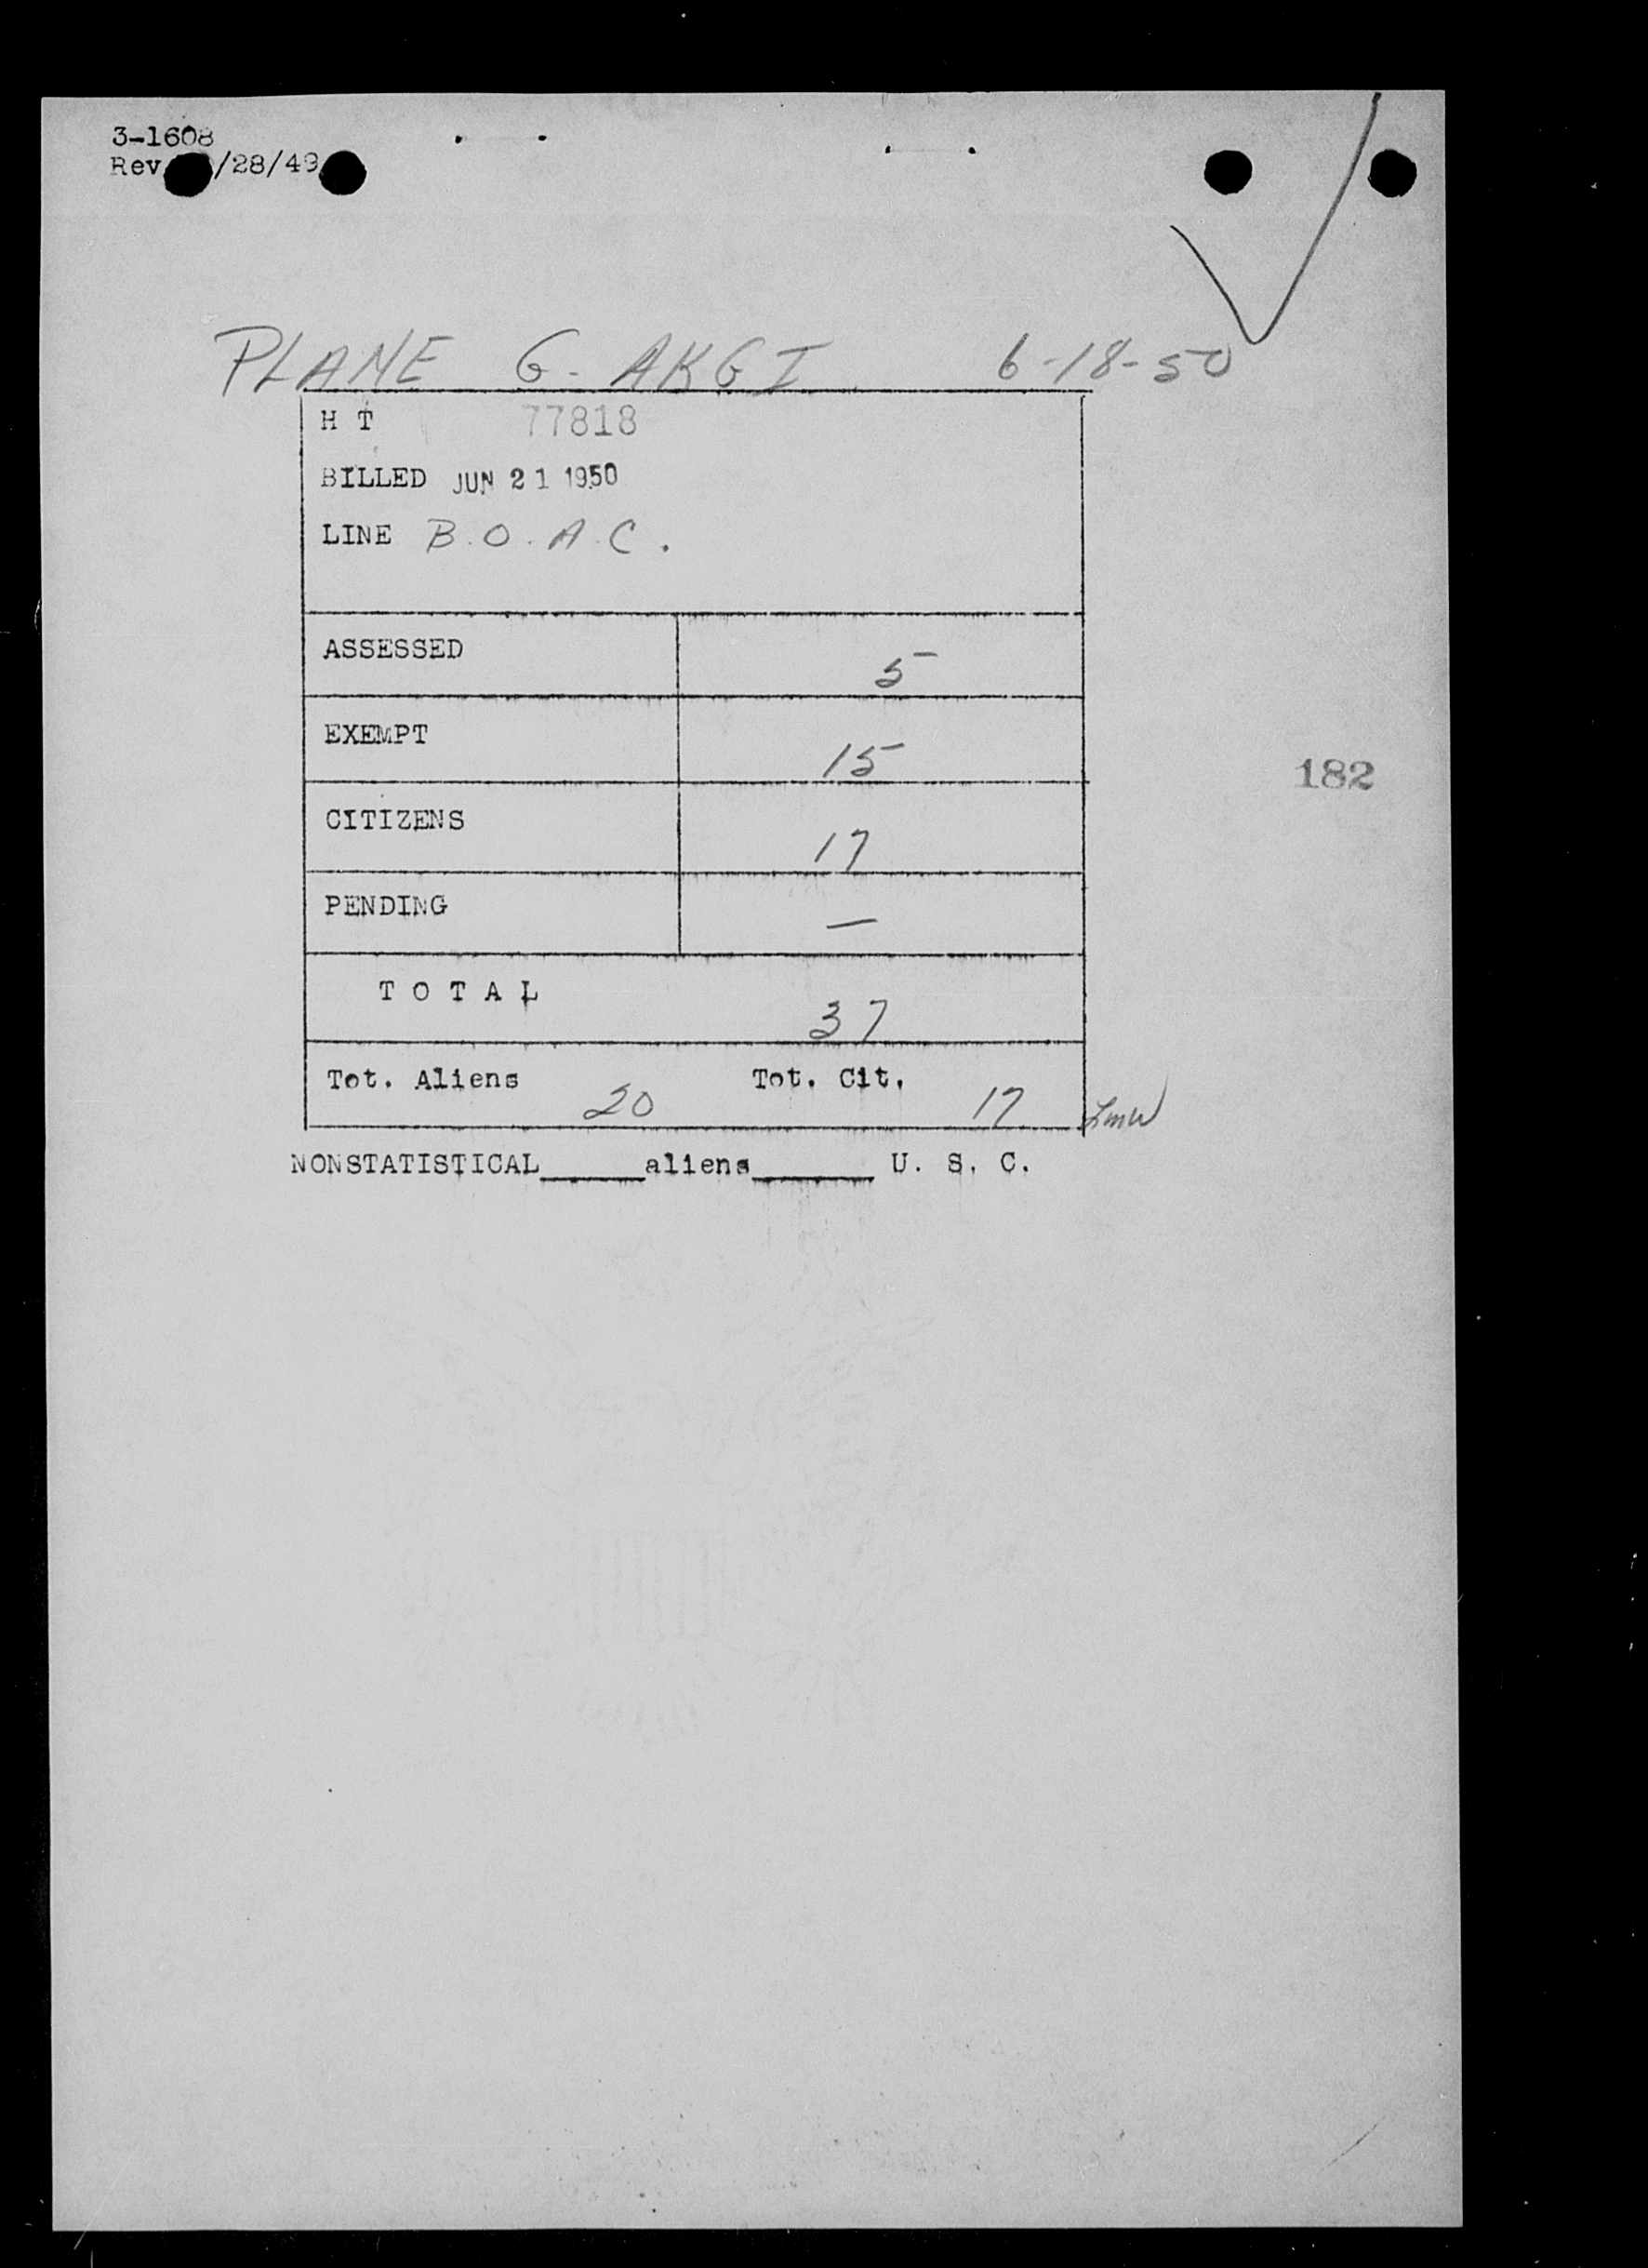 3-1608
Rev /28/49
PLANE G-AKGI 6-18-50
H T 77818
BILLED JUN 21 1950
LINE B.O.A.C.
ASSESSED 5
EXEMPT 15
182
CITIZENS 17
PENDING —
TOTAL 37
Tot. Aliens 20 Tot. Cit. 17 LmW
NONSTATISTICAL______aliens_______ U. S. C.